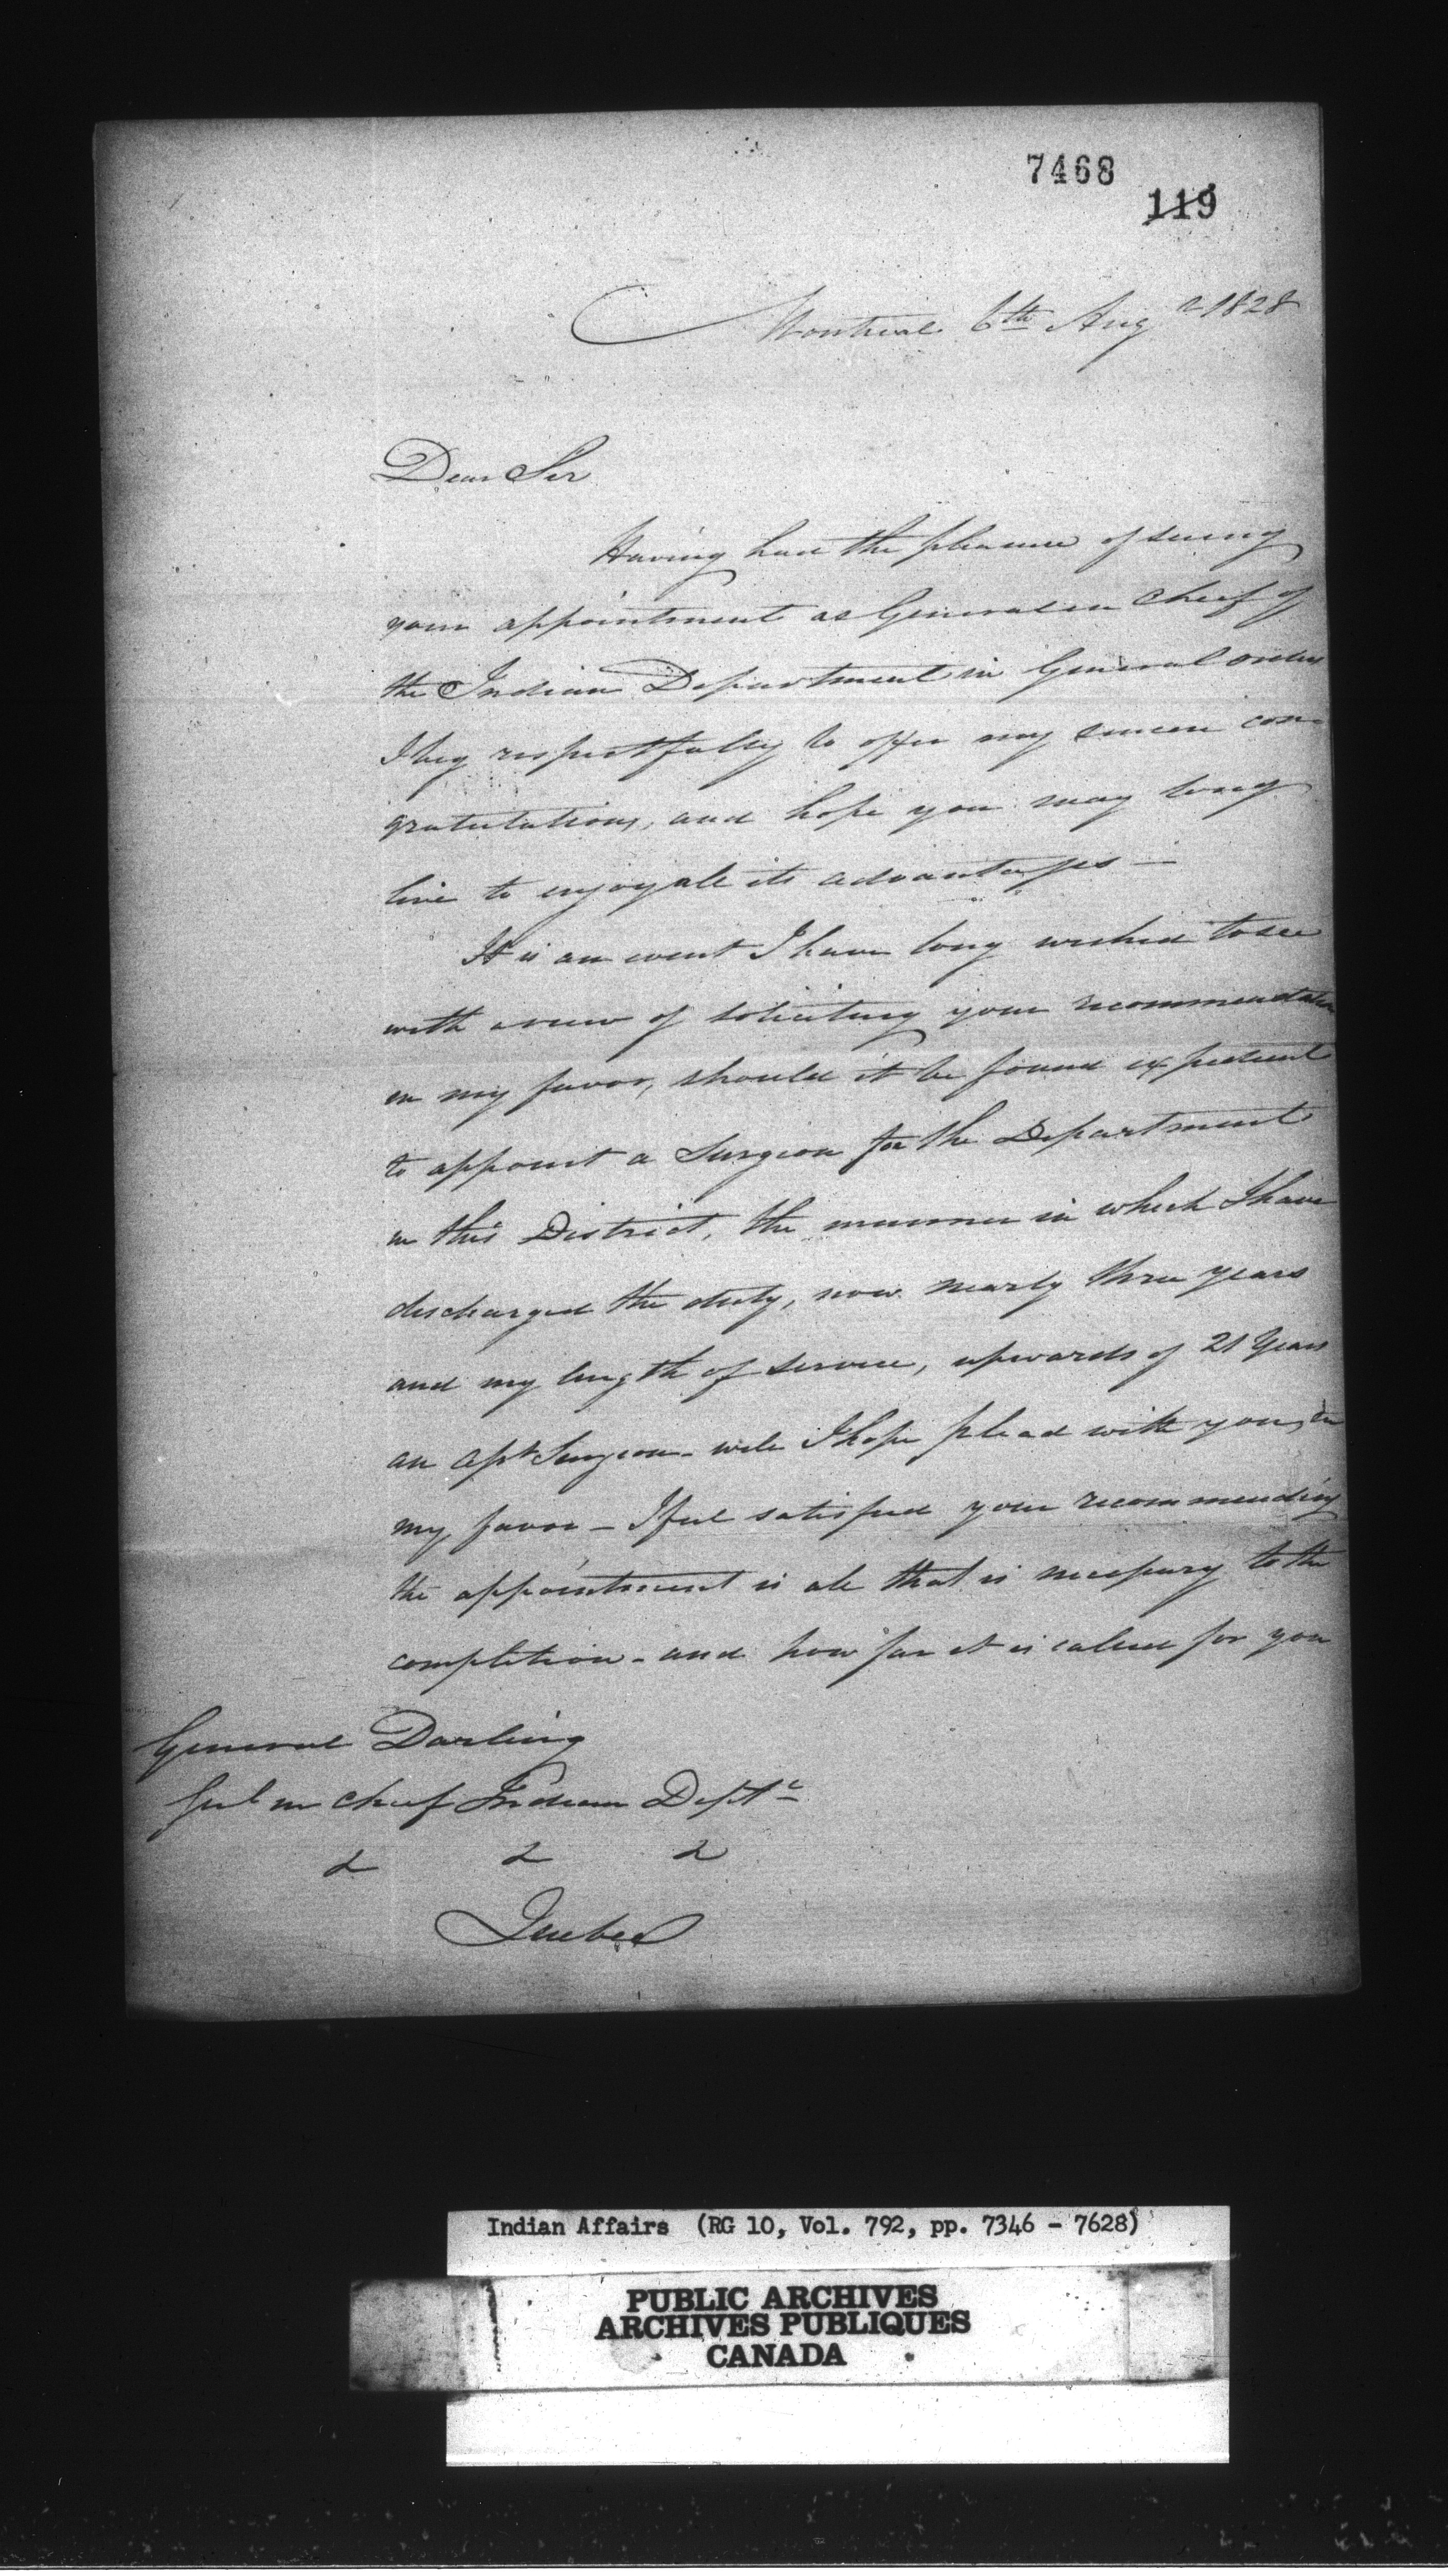 7468
119
Montreal 6th Augt 1828
Dear Sir
Having had the pleasure of seeing
your appointment as General in Chief of
the Indian Department in General orders
I beg respectfully to offer my sincere con-
gratulations, and hope you may long
live to enjoy all its advantages —
It is an event I have long wished to see
with a view of soliciting your recommendation
in my favor, should it be found expedient
to appoint a Surgeon for the Department
in this District, the manner in which I have
discharged the duty, now nearly three years
and my length of service, upwards of 21 Years
an Asst Surgeon - will I hope plead with you, in
my favor - I feel satisfied your recommending
the appointment is all that is necessary to the
completion - and how far it is called for you
General Darling
Genl in Chief Indian Deptt
& & &
Quebec
Indian Affairs (RG 10, Vol. 792, pp. 7346 - 7628)
PUBLIC ARCHIVES
ARCHIVES PUBLIQUES
CANADA